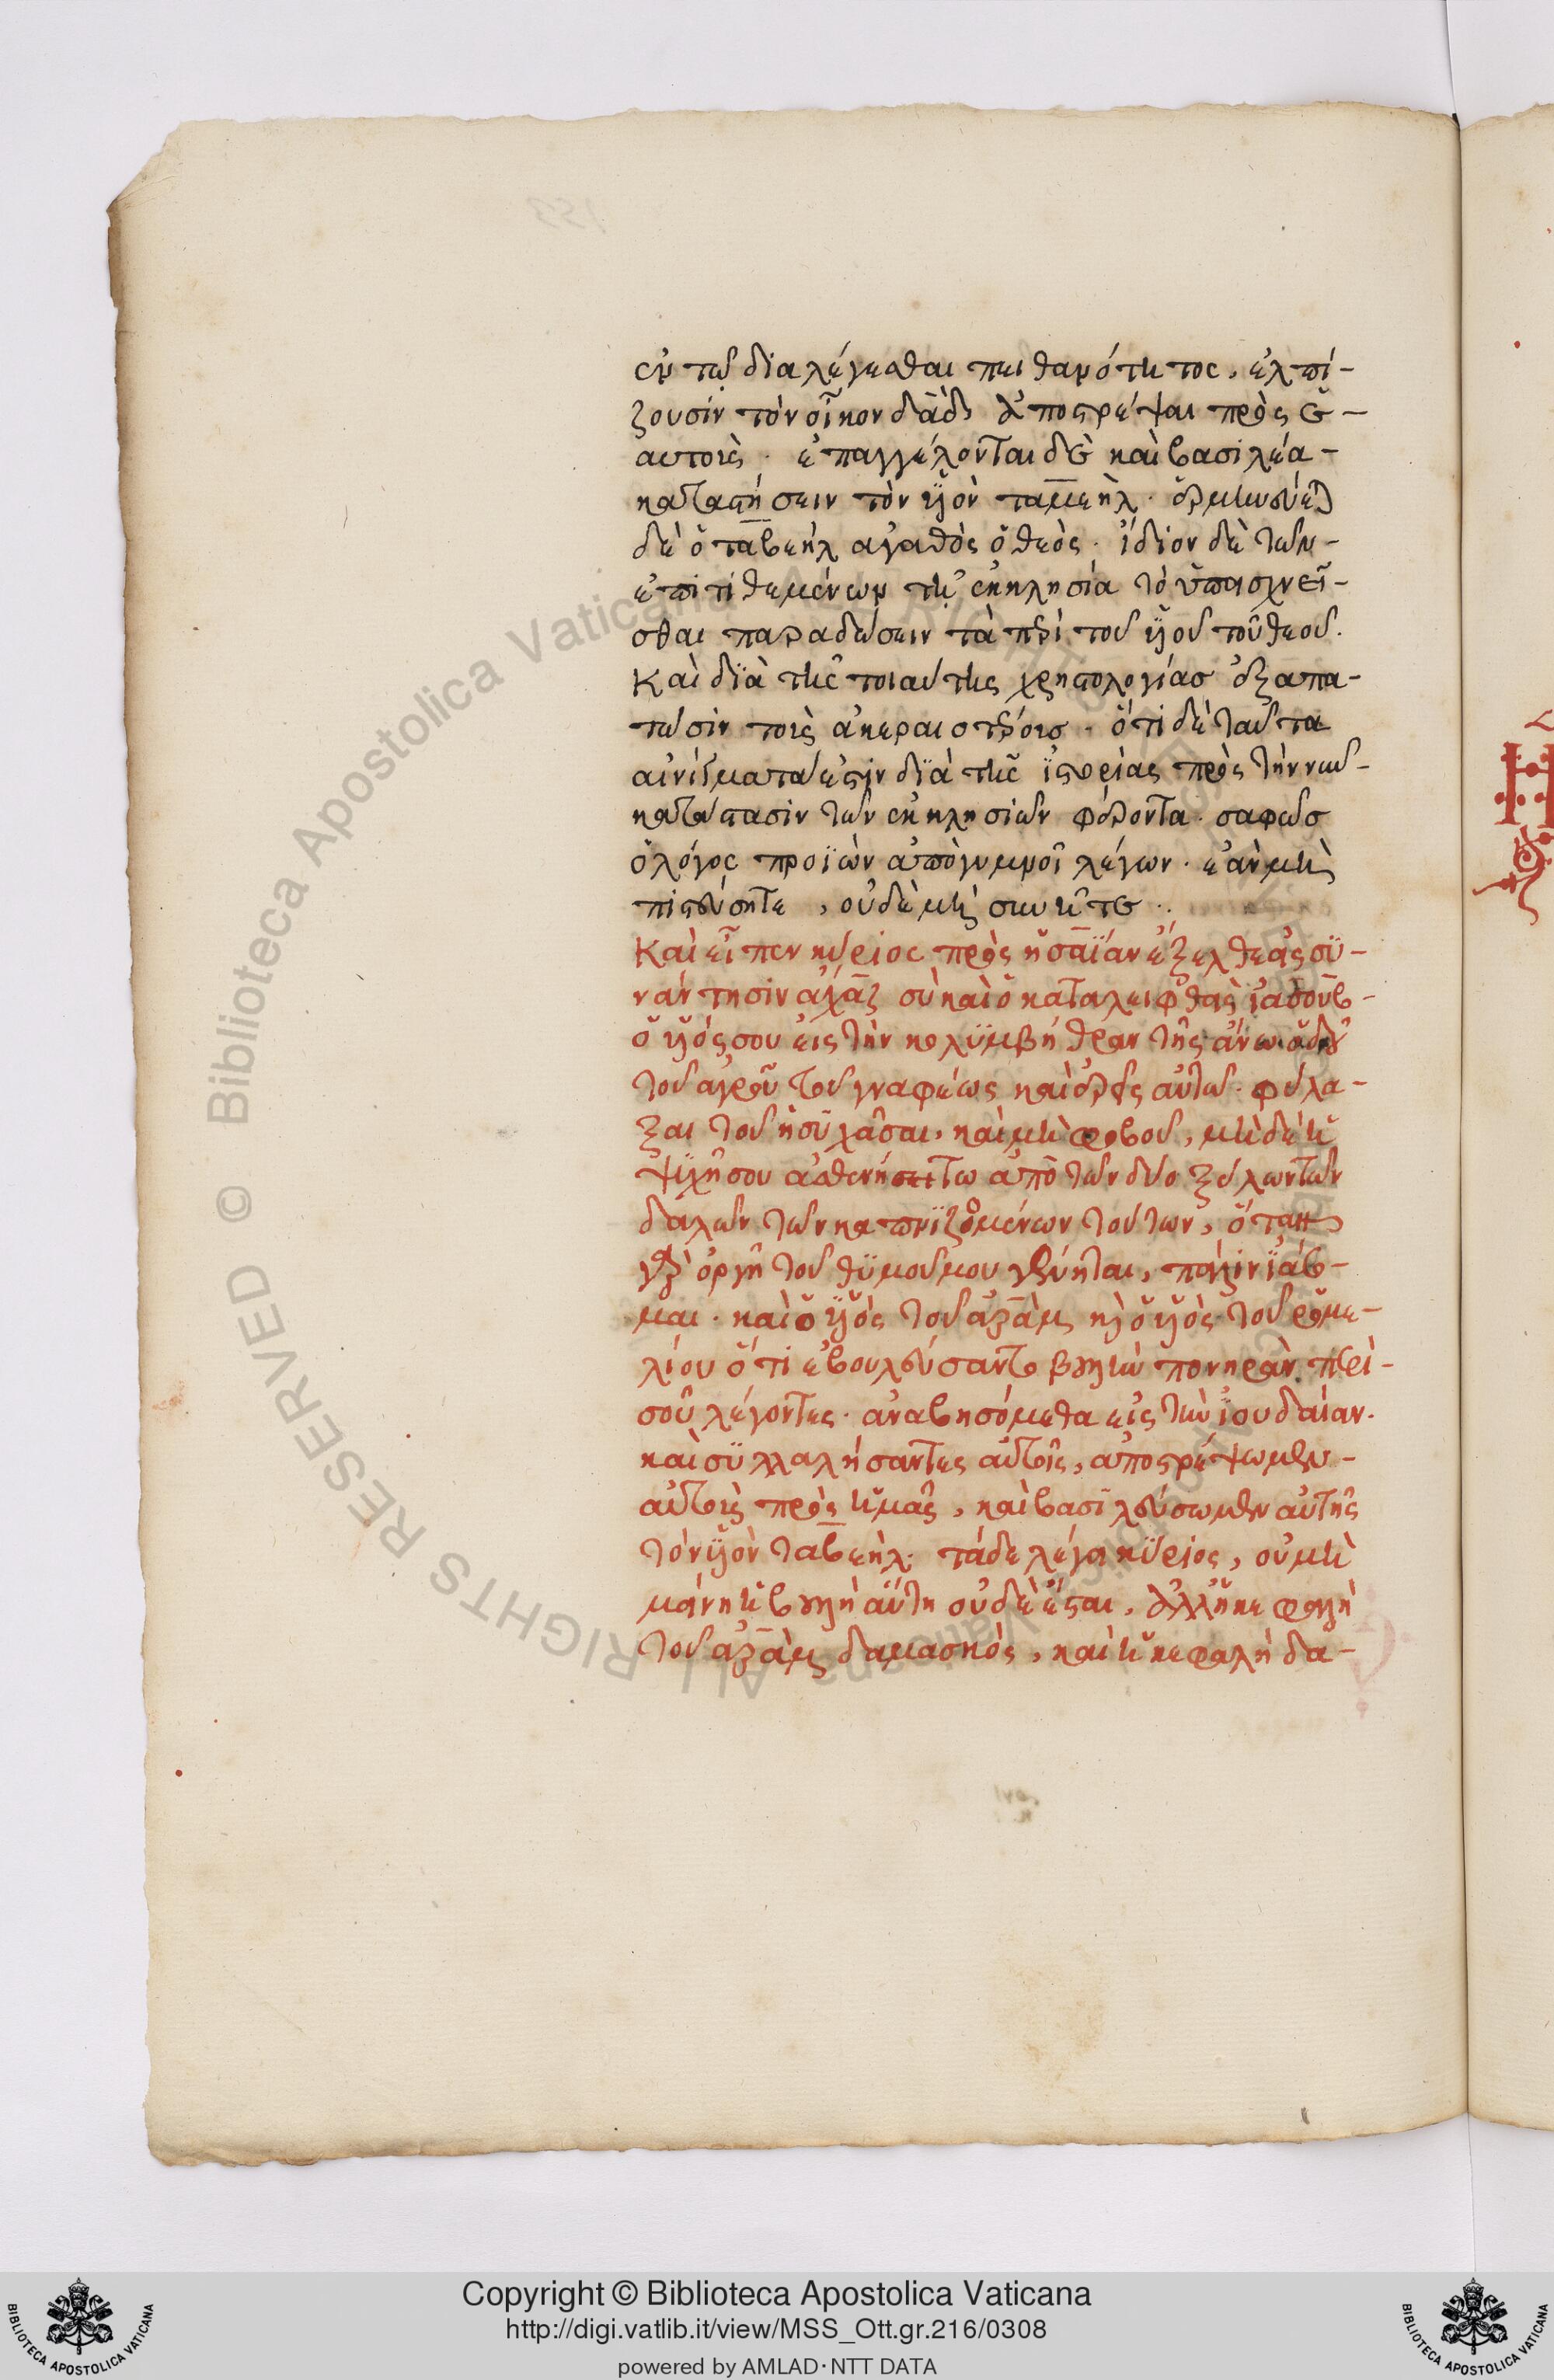 ἐν τῷ διαλέγεσθαι πειθανότητος, ἐλπί-
ζουσιν τὸν οἶκον δᾱδ ἀποστρέψαι πρὸς ἑ-
αυτοὺς. ἐπαγγέλονται δὲ καὶ βασιλέα-
καταστήσειν τὸν ὑἱὸν ταμεὴλ. ἑρμηνεύε
δὲ ὁ ταβεὴλ ἀγαθὸς ὁ θεὸς. ἴδιον δὲ τῶν-
ἐπιτιθεμένων τῇ ἐκκλησία τὸ ὑπισχνεῖ-
σθαι παραδώσειν τὰ περὶ τοῦ ὑἱοῦ τοῦ θεοῦ.
Καὶ δϊὰ τῆς τοιαύτης χρηστολογίας ἐξαπα-
τῶσιν τοὺς ἀκεραιοτέρους. ὅτι δὲ ταῦτα
αἰνίγματα ἐστὶν δϊὰ τῆς ἱστορίας πρὸς τὴν νῦν-
κατάστασιν τῶν ἐκκλησιῶν φέροντα. σαφῶς
ὁ λόγος προϊὼν ἀπογυμνοῖ λέγων. ἐὰν μὴ
πιστεύσητε, οὐδὲ μὴ συνῆτε.
Καὶ εἶπεν κύριος πρὸς ἡσαΐαν ἔξελθε εἰς συ-
νάντησιν ἀχὰζ σὺ καὶ ὁ καταλειφθεὶς ἰασοὺβ-
ὁ ὑἱός σου εἰς τὴν κολϋμβήθραν τῆς ἄνω ὁδοῦ
τοῦ ἀγροῦ τοῦ γναφέως καὶ ἐρεῖς αὐτῶ. φύλα-
ξαι τοῦ ἡσυχᾶσαι, καὶ μὴ φοβοῦ, μὴ δὲ ἡ
ψϋχή σου ἀσθενήσειτω ἀπὸ τῶν δύο ξύλων τῶν
δαλῶν τῶν καπνιζομένων τούτων, ὅταν
γὰρ ὀργὴ τοῦ θυμοῦ μου γένηται, πάλιν ἰάσ-
μαι. καὶ ὁ ὑἱὸς τοῦ ἀρὰμ κὶ ὁ ὑἱὸς τοῦ ρομε-
λίου ὅτι ἐβουλεύσαντο βουλὴν πονηρὰν περὶ-
σοῦ λέγοντες. ἀναβησόμεθα εἰς τὴν ἰουδαίαν.
καὶ συλλαλήσαντες αὐτοῖς, ἀποστρέψωμεν-
αὐτοὺς πρὸς ἡμᾶς, καὶ βασιλεύσωμεν αὐτῆς
τὸν ὑἱὸν ταβεὴλ. τάδε λέγει κύριος, οὐ μὴ
μείνη ἡ βουλὴ αὕτη οὐδὲ ἔσται. ἀλλ' ἡ κεφαλὴ
τοῦ ἀρὰμ δαμασκὸς, καὶ ἡ κεφαλὴ δα-
Copyright © Biblioteca Apostolica Vaticana
http://digi.vatlib.it/view/MSS_Ott.gr.216/0308
powered by AMLAD · NTT DATA